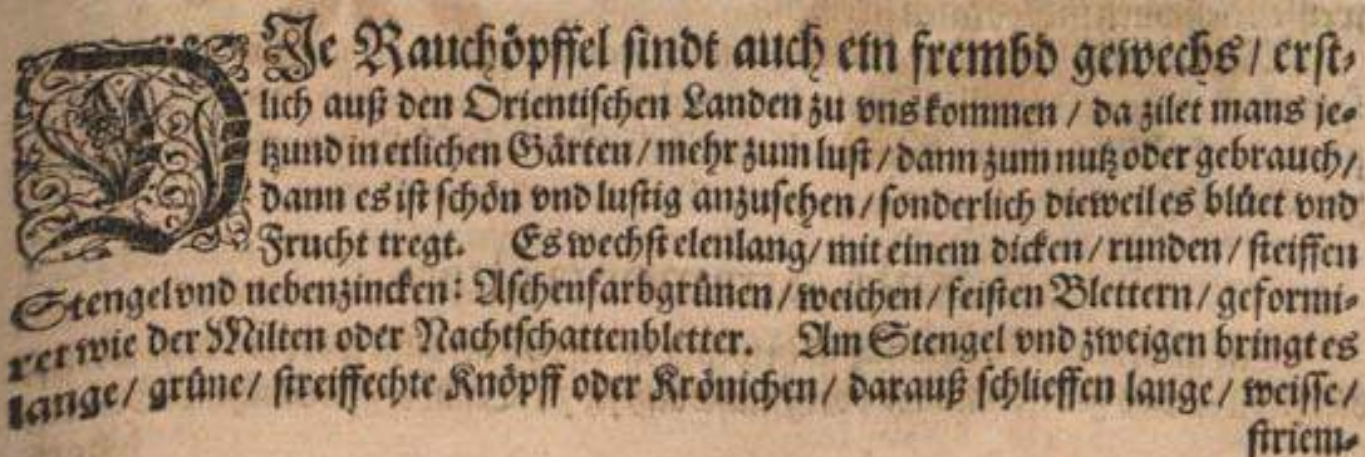 DIe Rauchöpffel sindt auch ein frembd gewechs / erst-
lich auß den Orientischen Landen zu vns kommen / da zilet mans je-
tzund in etlichen Gärten / mehr zum lust / dann zum nutz oder gebrauch /
dann es ist schön vnd lustig anzusehen / sonderlich dieweil es blüet vnd
Frucht tregt. Es wechst elenlang / mit einem dicken / runden / steiffen
Stengel vnd nebenzincken: Aschenfarbgrünen / weichen / feisten Blettern / geformi-
ret wie der Milten oder Nachtschattenbletter. Am Stengel vnd zweigen bringt es
lange / grüne / streiffechte Knöpff oder Krönichen / darauß schlieffen lange / weisse /
striem-